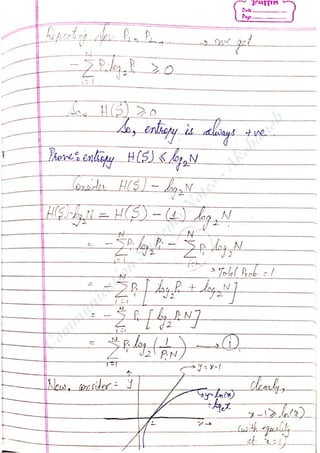 griffin
Date
Page
Repeating for P₁, P₂, ... → we get
- Σ_{i=1}^{N} Pᵢ log₂ Pᵢ ≥ 0
So, H(S) ≥ 0
So, entropy is always +ve
Prove: entropy H(S) ≤ log₂N
Consider H(S) - log₂N
H(S)-log₂N = H(S) - (1) log₂N
= - Σ_{i=1}^{N} Pᵢ log₂Pᵢ - Σ_{i=1}^{N} Pᵢ log₂N
→ Total Prob. = 1
= - Σ_{i=1}^{N} Pᵢ [ log₂Pᵢ + log₂N ]
= - Σ_{i=1}^{N} Pᵢ [ log₂ PᵢN ]
= Σ_{i=1}^{N} Pᵢ log₂ (1/PᵢN) → ①
Now, consider:- y
→ y=x-1
clearly,
→ y=ln(x)
= logₑx
x-1 ≥ ln(x)
1
x→
(with equality
at x=1)